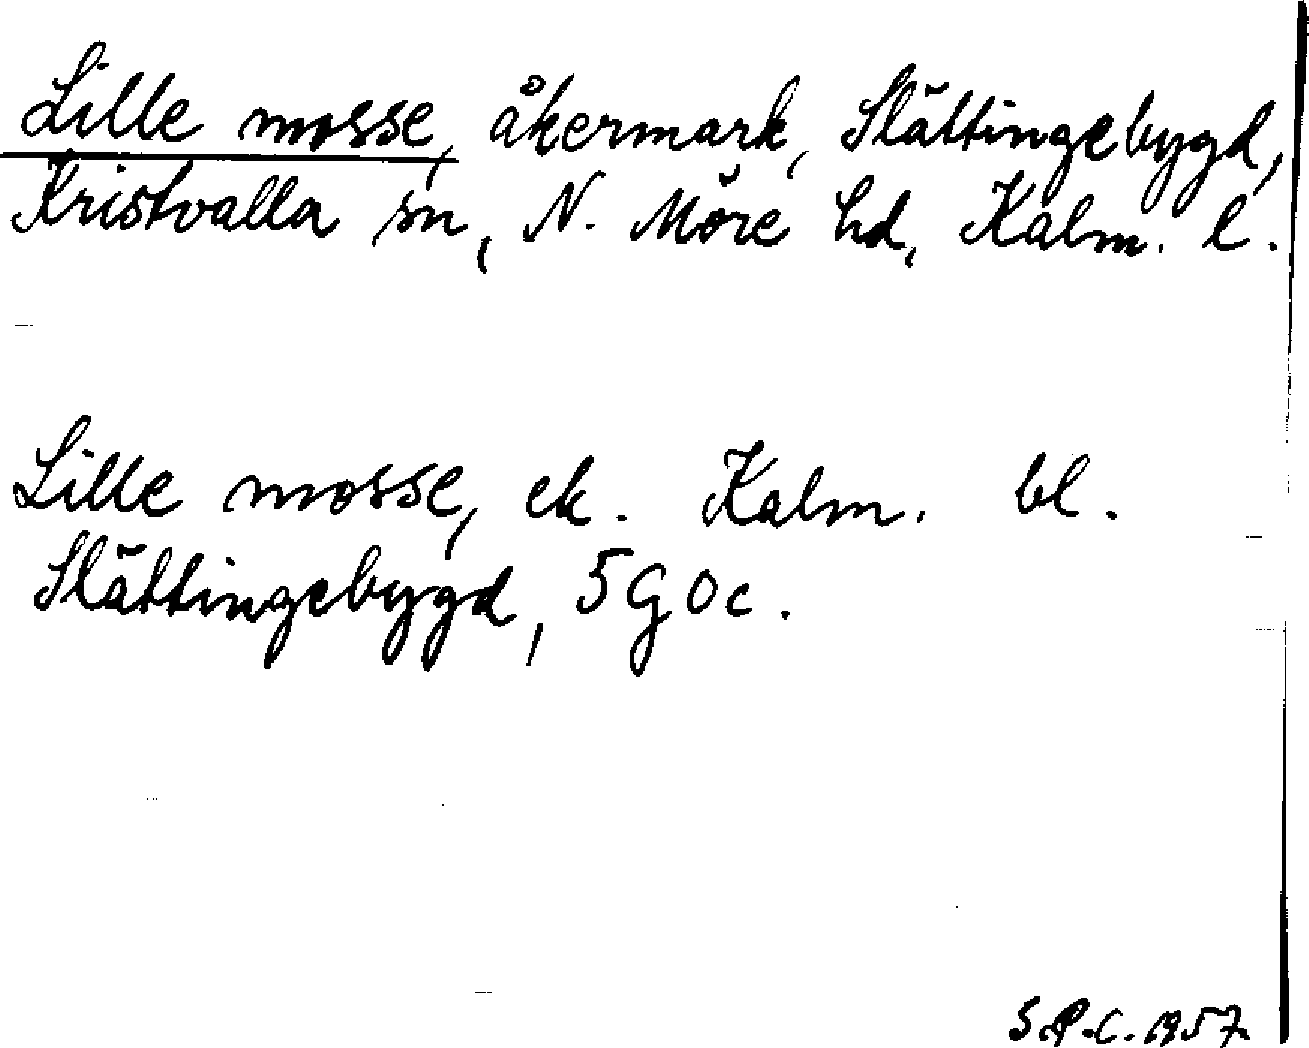 Lille mosse, åkermark, Slättingebygd,
Kristvalla sn, N. Möre hd, Kalm. l.
Lille mosse, ek. Kalm. bl.
Slättingebygd, 5 G 0 c.
S.P-C. 1957